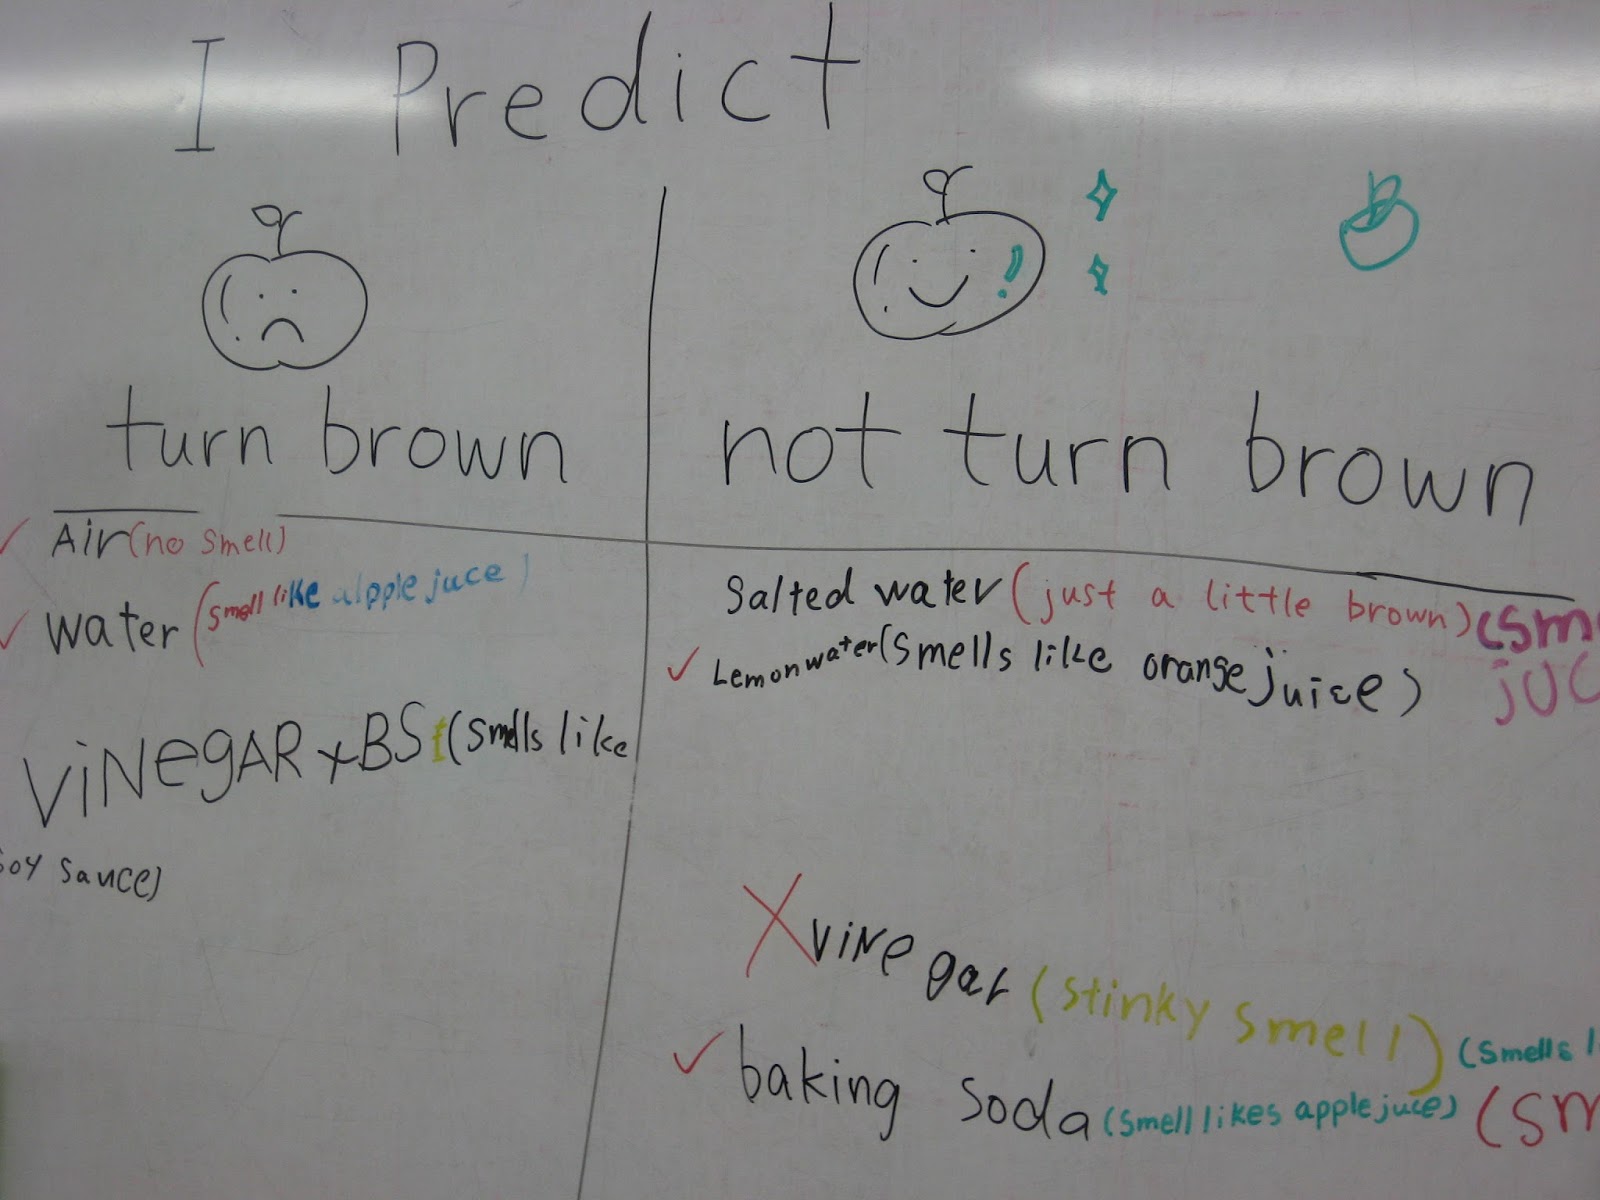 I Predict
turn brown
Air (no smell)
water (smell like alpple juce)
ViNegAR + BS (smells like
soy sauce)
not turn brown
Salted water (just a little brown) (sm
Lemonwater (smells like orange juice) juc
X vinegar (stinky smell) (smells l
baking soda (smell likes apple juce) (sm